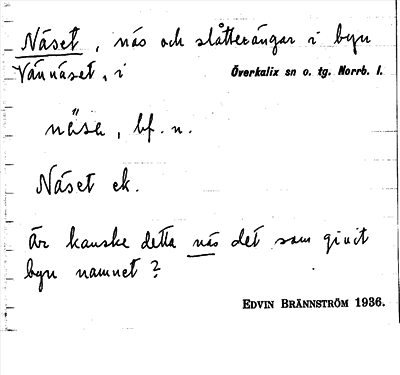 Näset, näs och slåtterängar i byn
Vännäset, i Överkalix sn o. tg. Norrb. l.
nä̋sa, bf. n.
Näset ek.
är kanske detta näs det som givit
byn namnet?
EDVIN BRÄNNSTRÖM 1936.